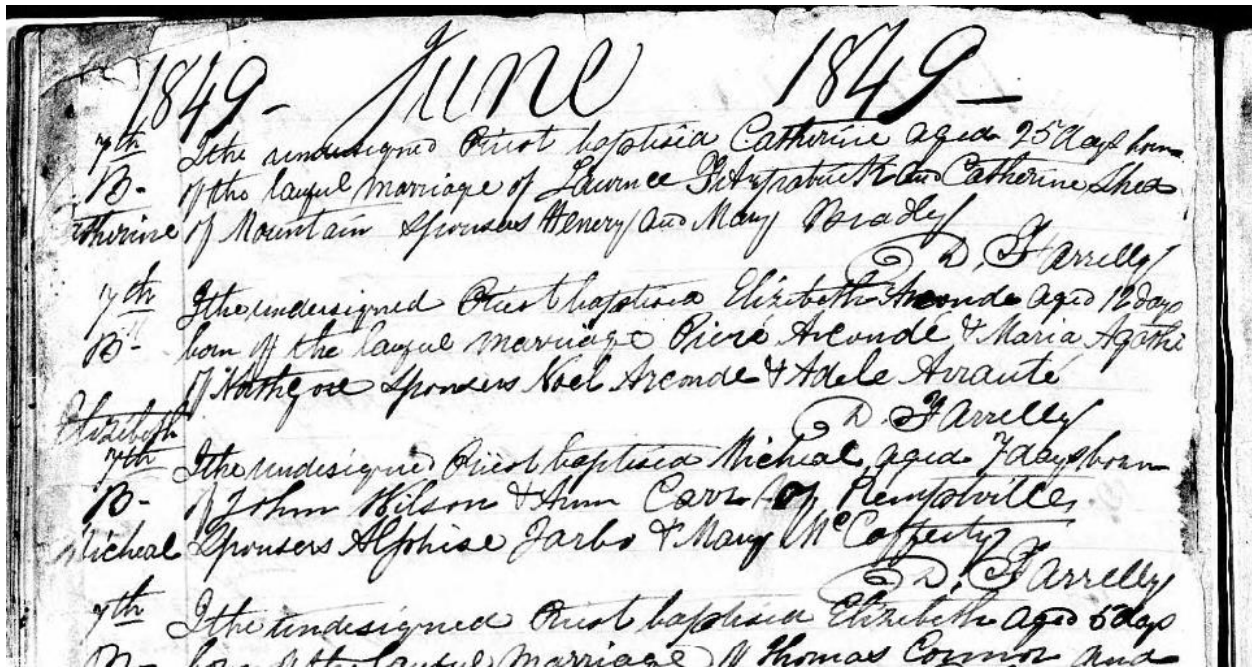 1849 - June 1849 -
7th I the undesigned Priest baptised Catherine aged 25 days born
B- of the lawful marriage of Laurnce Fitzpatrick and Catherine Shea
Catherine of Mountain Sponsers Henery and Mary Bradly
D. Farrelly
7th I the undesigned Priest baptised Elizibeth Arconde aged 12 days
B- born of the lawful marriage Piere Arconde & Maria Agathe
of Sponsers Noel Arconde & Adele Arranté
Elizibeth D. Farrelly
7th I the undesigned Priest baptised Micheal aged 7 days born
B- of John Wilson & Ann Carr of Kemptville
Micheal Sponsers Alphise Jarbo & Mary McCafferty
D. Farrelly
7th I the undesigned Priest baptised Elizibeth aged 5 days
B- born of the lawful marriage of Thomas Connor and